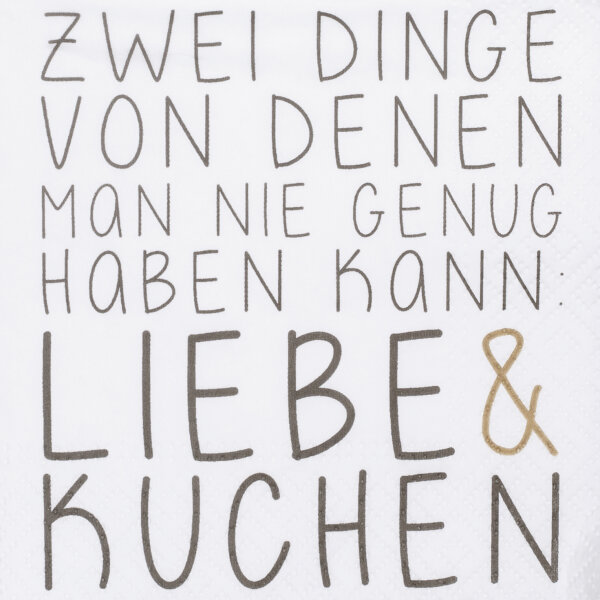 ZWEI DINGE
VON DENEN
MaN NIE GENUG
HaBEN KaNN:
LIEBE &
KUCHEN